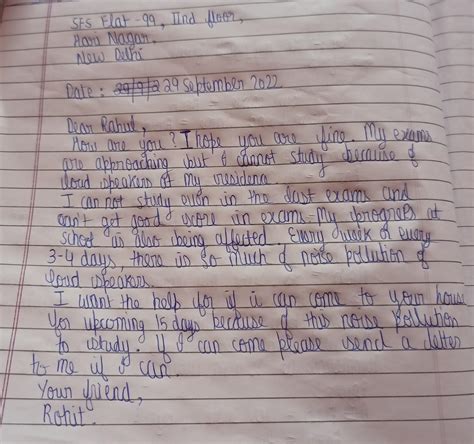 SFS Flat-99, IInd floor,
Hari Nagar.
New Delhi
Date : 29/9/2 29 September 2022
Dear Rahul,
How are you? I hope you are fine. My exams
are approaching but I cannot study because of
loud speakers of my residena
I can not study even in the last exams and
can't get good score in exams. My progness at
school is also being affected. Every week of every
3-4 days, there is so much of noise pollution of
loud speakers.
I want the help for if i can come to your house
for upcoming 15 days because of this noise pollution
to study. If I can come please send a letter
to me if I can.
Your friend,
Rohit.